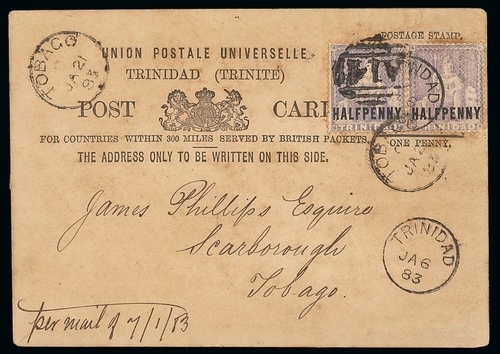 POSTAGE STAMP.
UNION POSTALE UNIVERSELLE
TRINIDAD (TRINITE)
POST CARD
FOR COUNTRIES WITHIN 300 MILES SERVED BY BRITISH PACKETS.
THE ADDRESS ONLY TO BE WRITTEN ON THIS SIDE.
HALFPENNY HALFPENNY
TRINIDAD TRINIDAD
ONE PENNY.
TOBAGO
JA 21
83
A14
TRINIDAD
TOBAGO
JA
83
James Phillips Esquire
Scarborough
Tobago.
TRINIDAD
JA 6
83
per mail of 7/1/83